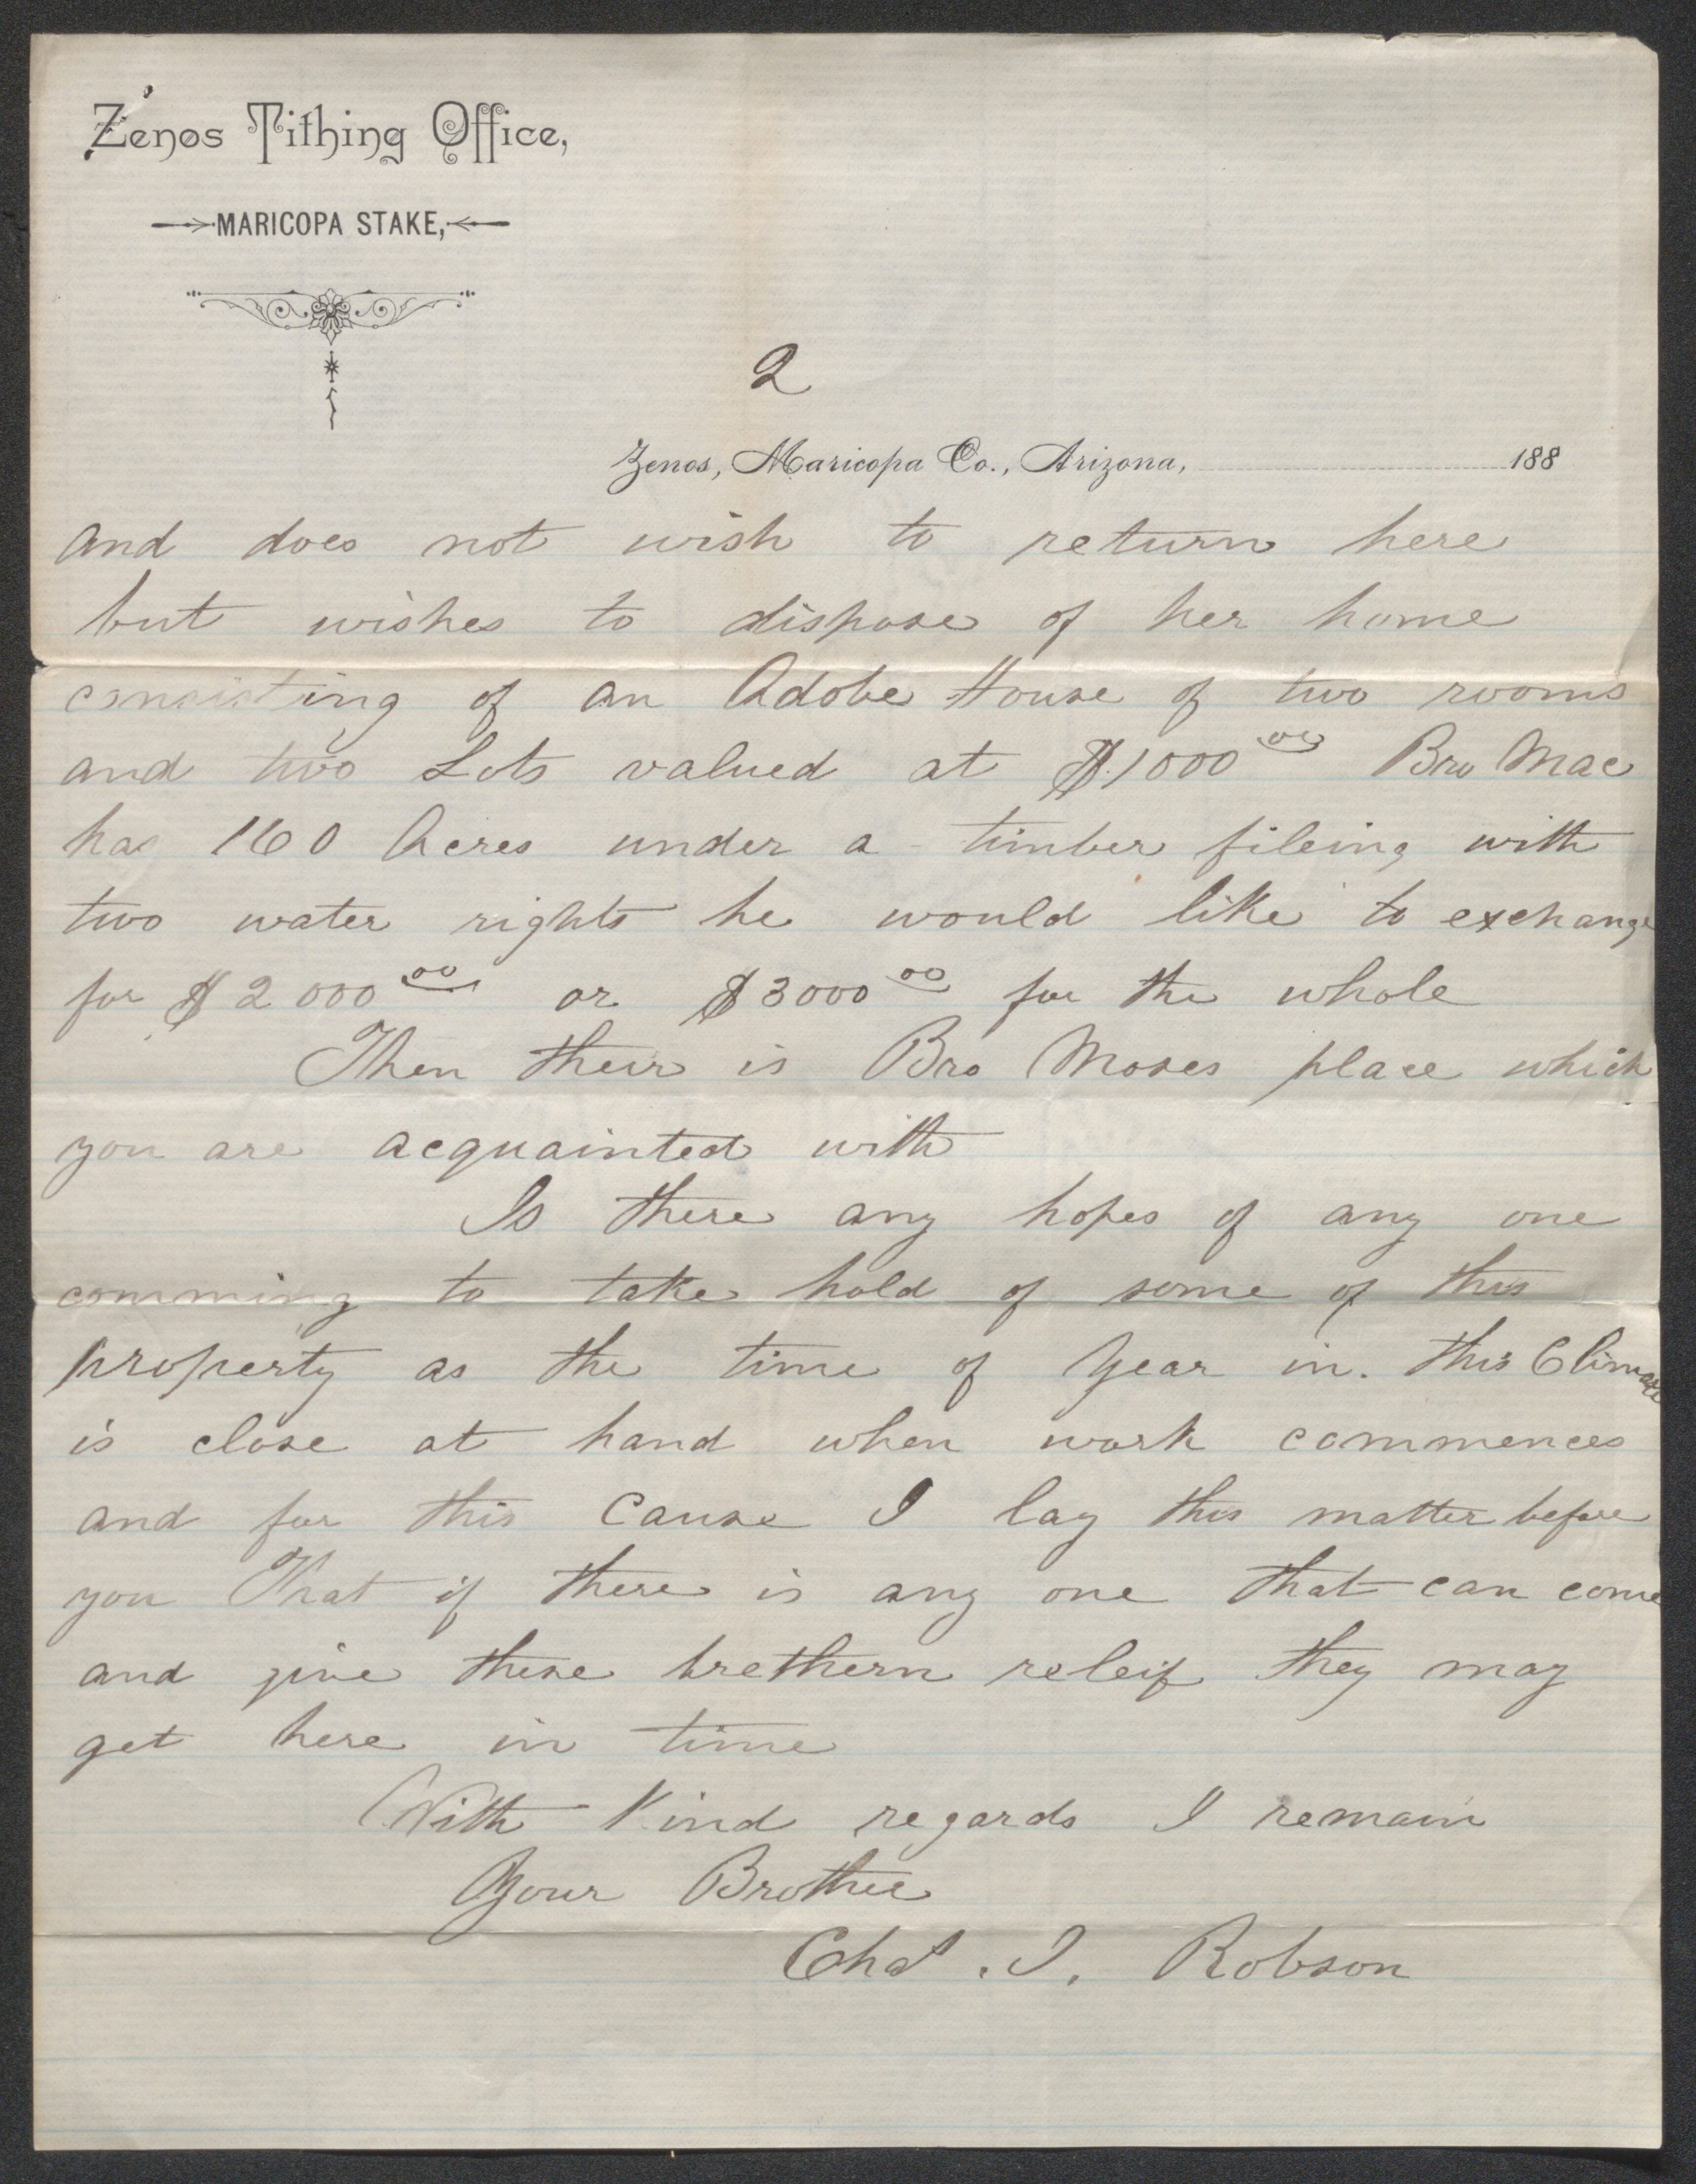 Zenos Tithing Office,
MARICOPA STAKE,
2
Zenos, Maricopa Co., Arizona, 188
and does not wish to return here
but wishes to dispose of her home
consisting of an Adobe House of two rooms
and two Lots valued at $1000 00 Bro Mac
has 160 Acres under a timber fileing with
two water rights he would like to exchange
for $2000 00 or $3000 00 for the whole
Then their is Bro Moses place which
you are acquainted with
Is there any hopes of any one
comming to take hold of some of this
property as the time of Year in. this Climate
is close at hand when work commences
and for this Cause I lay this matter before
you That if there is any one that can come
and give these brethern releif they may
get here in time
With Kind regards I remain
Your Brother
Chas. I. Robson